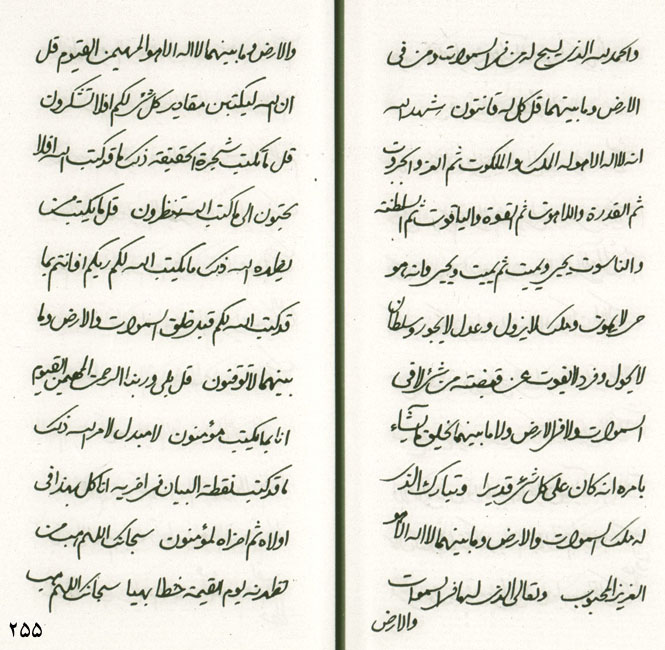 والحمد لله الذی یسبح له من فی السموات ومن فی
الارض وما بینهما قل کل له قانتون شهد الله
انه لا اله الا هو له الملک والملکوت ثم العز والجبروت
ثم القدرة واللاهوت ثم القوة والیاقوت ثم السلطنة
والناسوت یحیی ویمیت ثم یمیت ویحیی وانه هو
حی لا یموت وملک لا یزول وعدل لا یجور وسلطان
لا یحول وفرد لا یفوت عن قبضته من شیء لا فی
السموات ولا فی الارض ولا ما بینهما یخلق ما یشاء
بامره انه کان علی کل شیء قدیرا وتبارک الذی
له ملک السموات والارض وما بینهما لا اله الا هو
العزیز المحبوب وتعالی الذی له ما فی السموات
والارض
والارض وما بینهما لا اله الا هو المهیمن القیوم قل
ان الله لیکتبن مقادیر کل شیء لکم افلا تشکرون
قل ما یکتب شجرة الحقیقة ذلک ما قد کتب الله افلا
تحبون الی ما کتب الله تنظرون قل ما یکتب من
یظهره الله ذلک ما یکتب الله لکم ربکم افانتم بما
قد کتب الله لکم قبل خلق السموات والارض وما
بینهما لا توقنون قل بلی وربنا الرحمن المهیمن القیوم
انا بما یکتب مؤمنون لا مبدل لامر الله ذلک
ما قد کتب لنقطة البیان فی اخریه انا کل بهذا فی
اولاه ثم اخراه لمؤمنون سبحانک اللهم هب من
تظهرنه یوم القیمة خطا بهیا سبحانک اللهم هب
٢٥٥